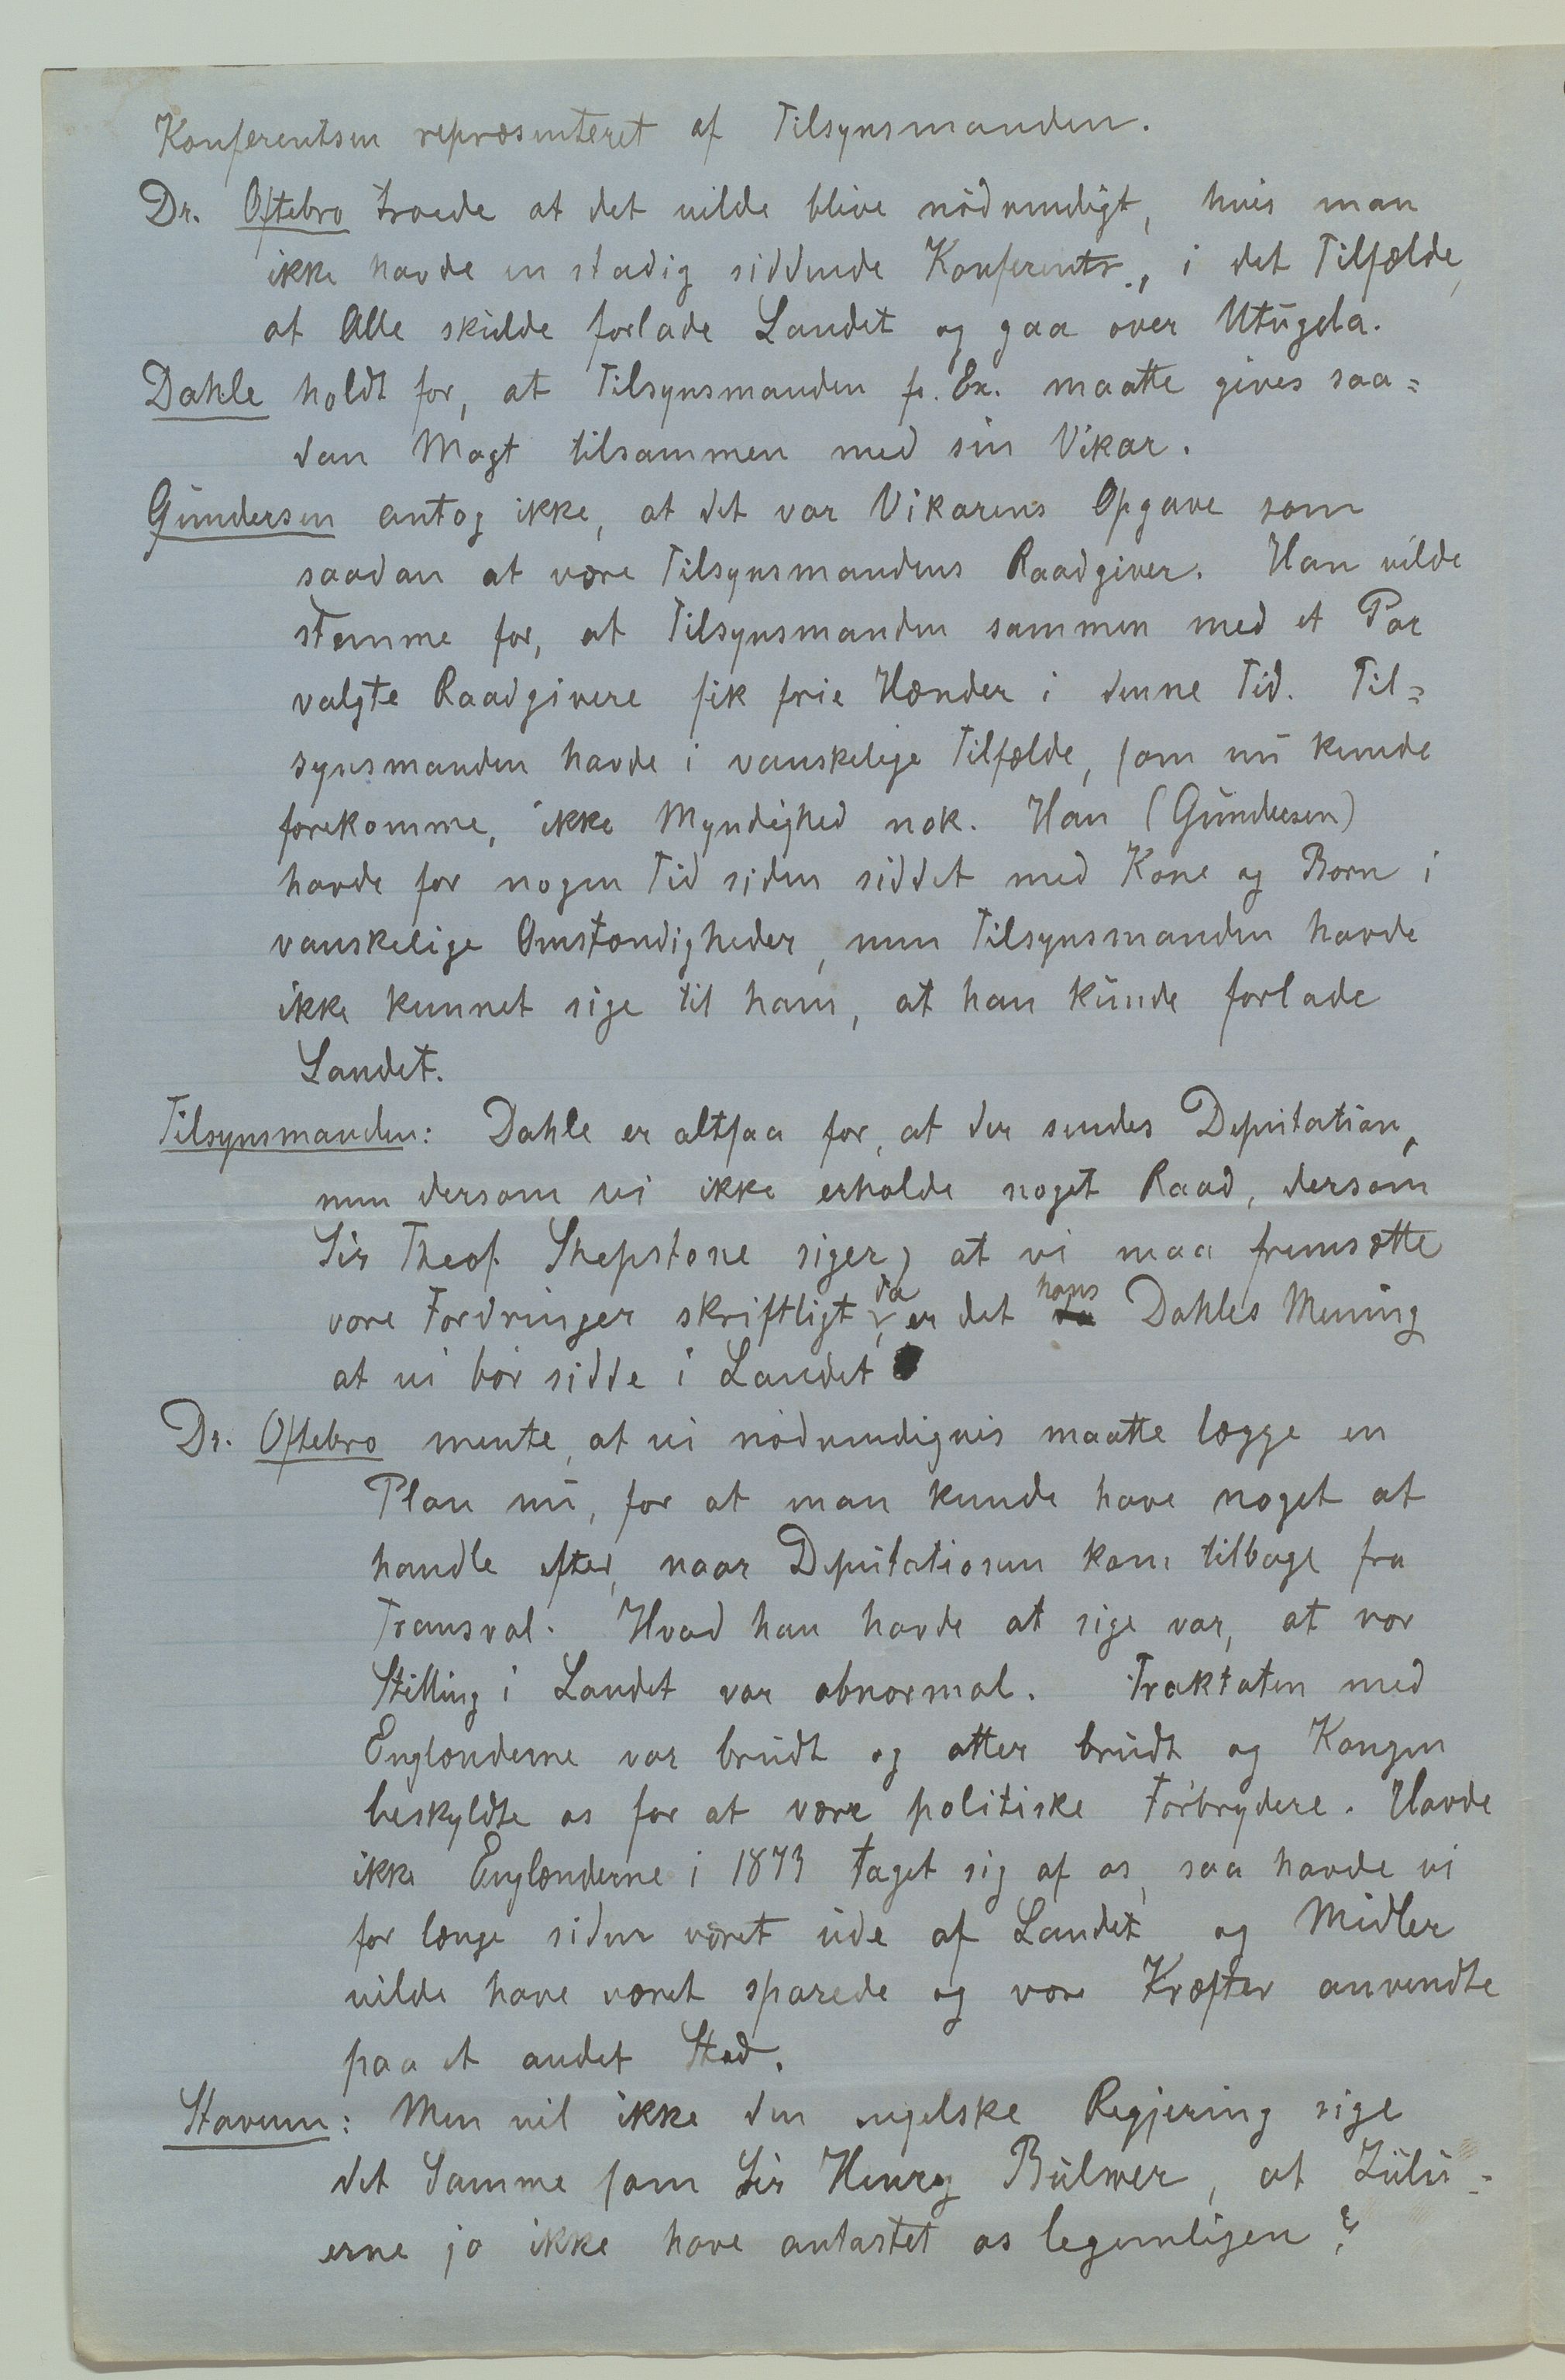 Konferentsen repræsenteret af Tilsynsmanden.
Dr. Oftebro troede at det vilde blive nödvendigt, hvis man
ikke havde en stadig siddende Konferents., i det Tilfælde,
at Alle skulde forlade Landet og gaa over Utugela.
Dahle holdt for, at Tilsynsmanden f. Ex. maatte gives saa=
dan Magt tilsammen med sin Vikar.
Gundersen antog ikke, at det var Vikarens Opgave som
saadan at være Tilsynsmandens Raadgiver. Han vilde
stemme for, at Tilsynsmanden sammen med et Par
valgte Raadgivere fik frie Hænder i denne Tid. Til=
synsmanden havde i vanskelige Tilfælde, som nu kunde
forekomme, ikke Myndighed nok. Han (Gundersen)
havde for nogen Tid siden siddet med Kone og Børn i
vanskelige Omstændigheder, men Tilsynsmanden havde
ikke kunnet sige til ham, at han kunde forlade
Landet.
Tilsynsmanden: Dahle er altsaa for, at der sendes Deputation,
men dersom vi ikke erholde noget Raad, dersom
Sir Theof. Shepstone siger, at vi maa fremsætte
vore Fordringer skriftligt, da er det hans Dahles Mening
at vi bör sidde i Landet
Dr. Oftebro mente, at vi nödvendigvis maatte lægge en
Plan nu, for at man kunde have noget at
handle efter, naar Deputationen kom tilbage fra
Transval. Hvad han havde at sige var, at vor
Stilling i Landet var abnormal. Traktaten med
Englænderne var brudt og atter brudt og Kongen
beskyldte os for at være politiske Forbrydere. Havde
ikke Englænderne i 1873 taget sig af os, saa havde vi
for længe siden været ude af Landet og Midler
vilde have været sparede og vore Kræfter anvendte
paa et andet Sted.
Stavem: Men vil ikke den engelske Regjering sige
det Samme som Sir Henry Bulwer, at Zulu-
erne jo ikke have antastet os legemligen?